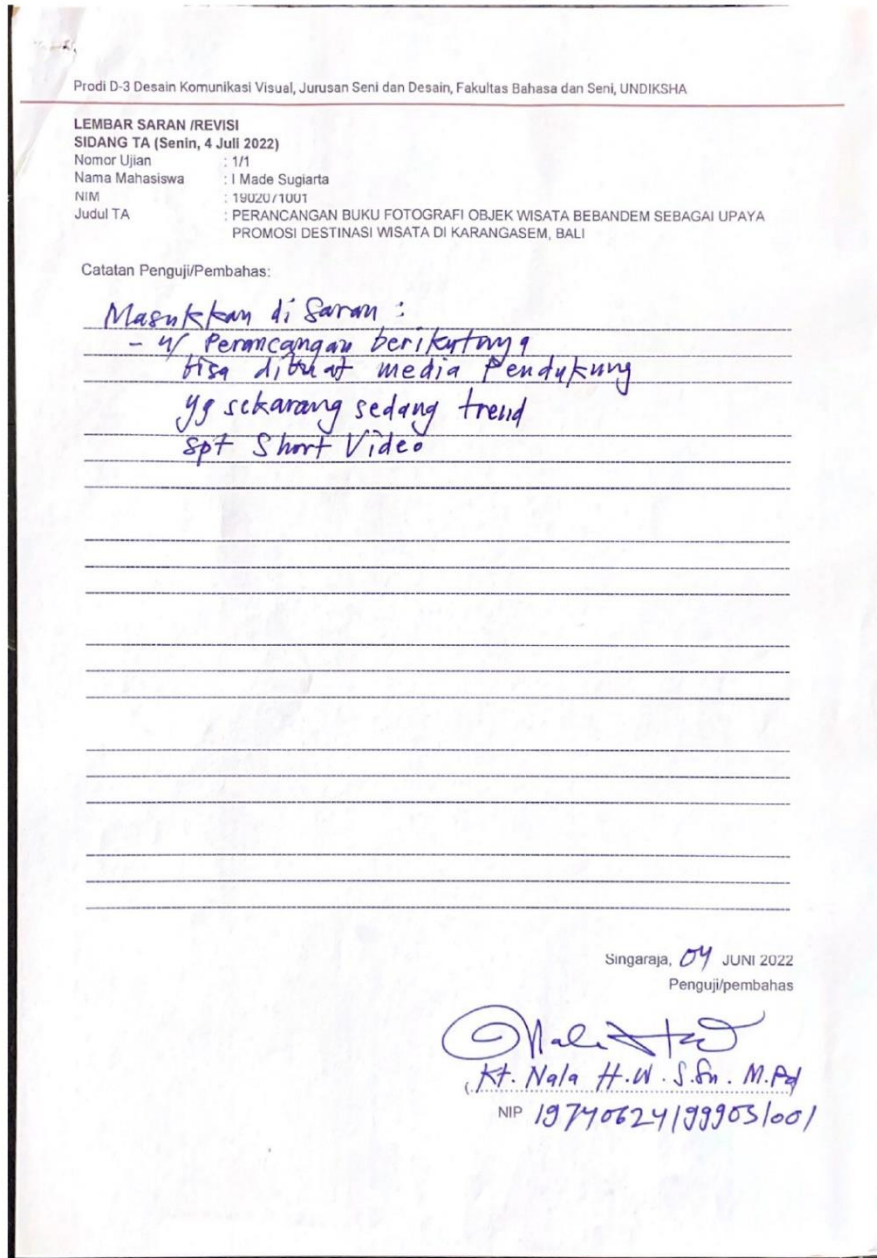 Prodi D-3 Desain Komunikasi Visual, Jurusan Seni dan Desain, Fakultas Bahasa dan Seni, UNDIKSHA
LEMBAR SARAN /REVISI
SIDANG TA (Senin, 4 Juli 2022)
Nomor Ujian : 1/1
Nama Mahasiswa : I Made Sugiarta
NIM : 1902071001
Judul TA : PERANCANGAN BUKU FOTOGRAFI OBJEK WISATA BEBANDEM SEBAGAI UPAYA
PROMOSI DESTINASI WISATA DI KARANGASEM, BALI
Catatan Penguji/Pembahas:
Masukkan di Saran :
- u/ Perancangan berikutnya
bisa dibuat media Pendukung
yg sekarang sedang trend
spt Short Video
Singaraja, 04 JUNI 2022
Penguji/pembahas
Kt. Nala H.W. S.Sn. M.Pd
NIP 197406241999031001